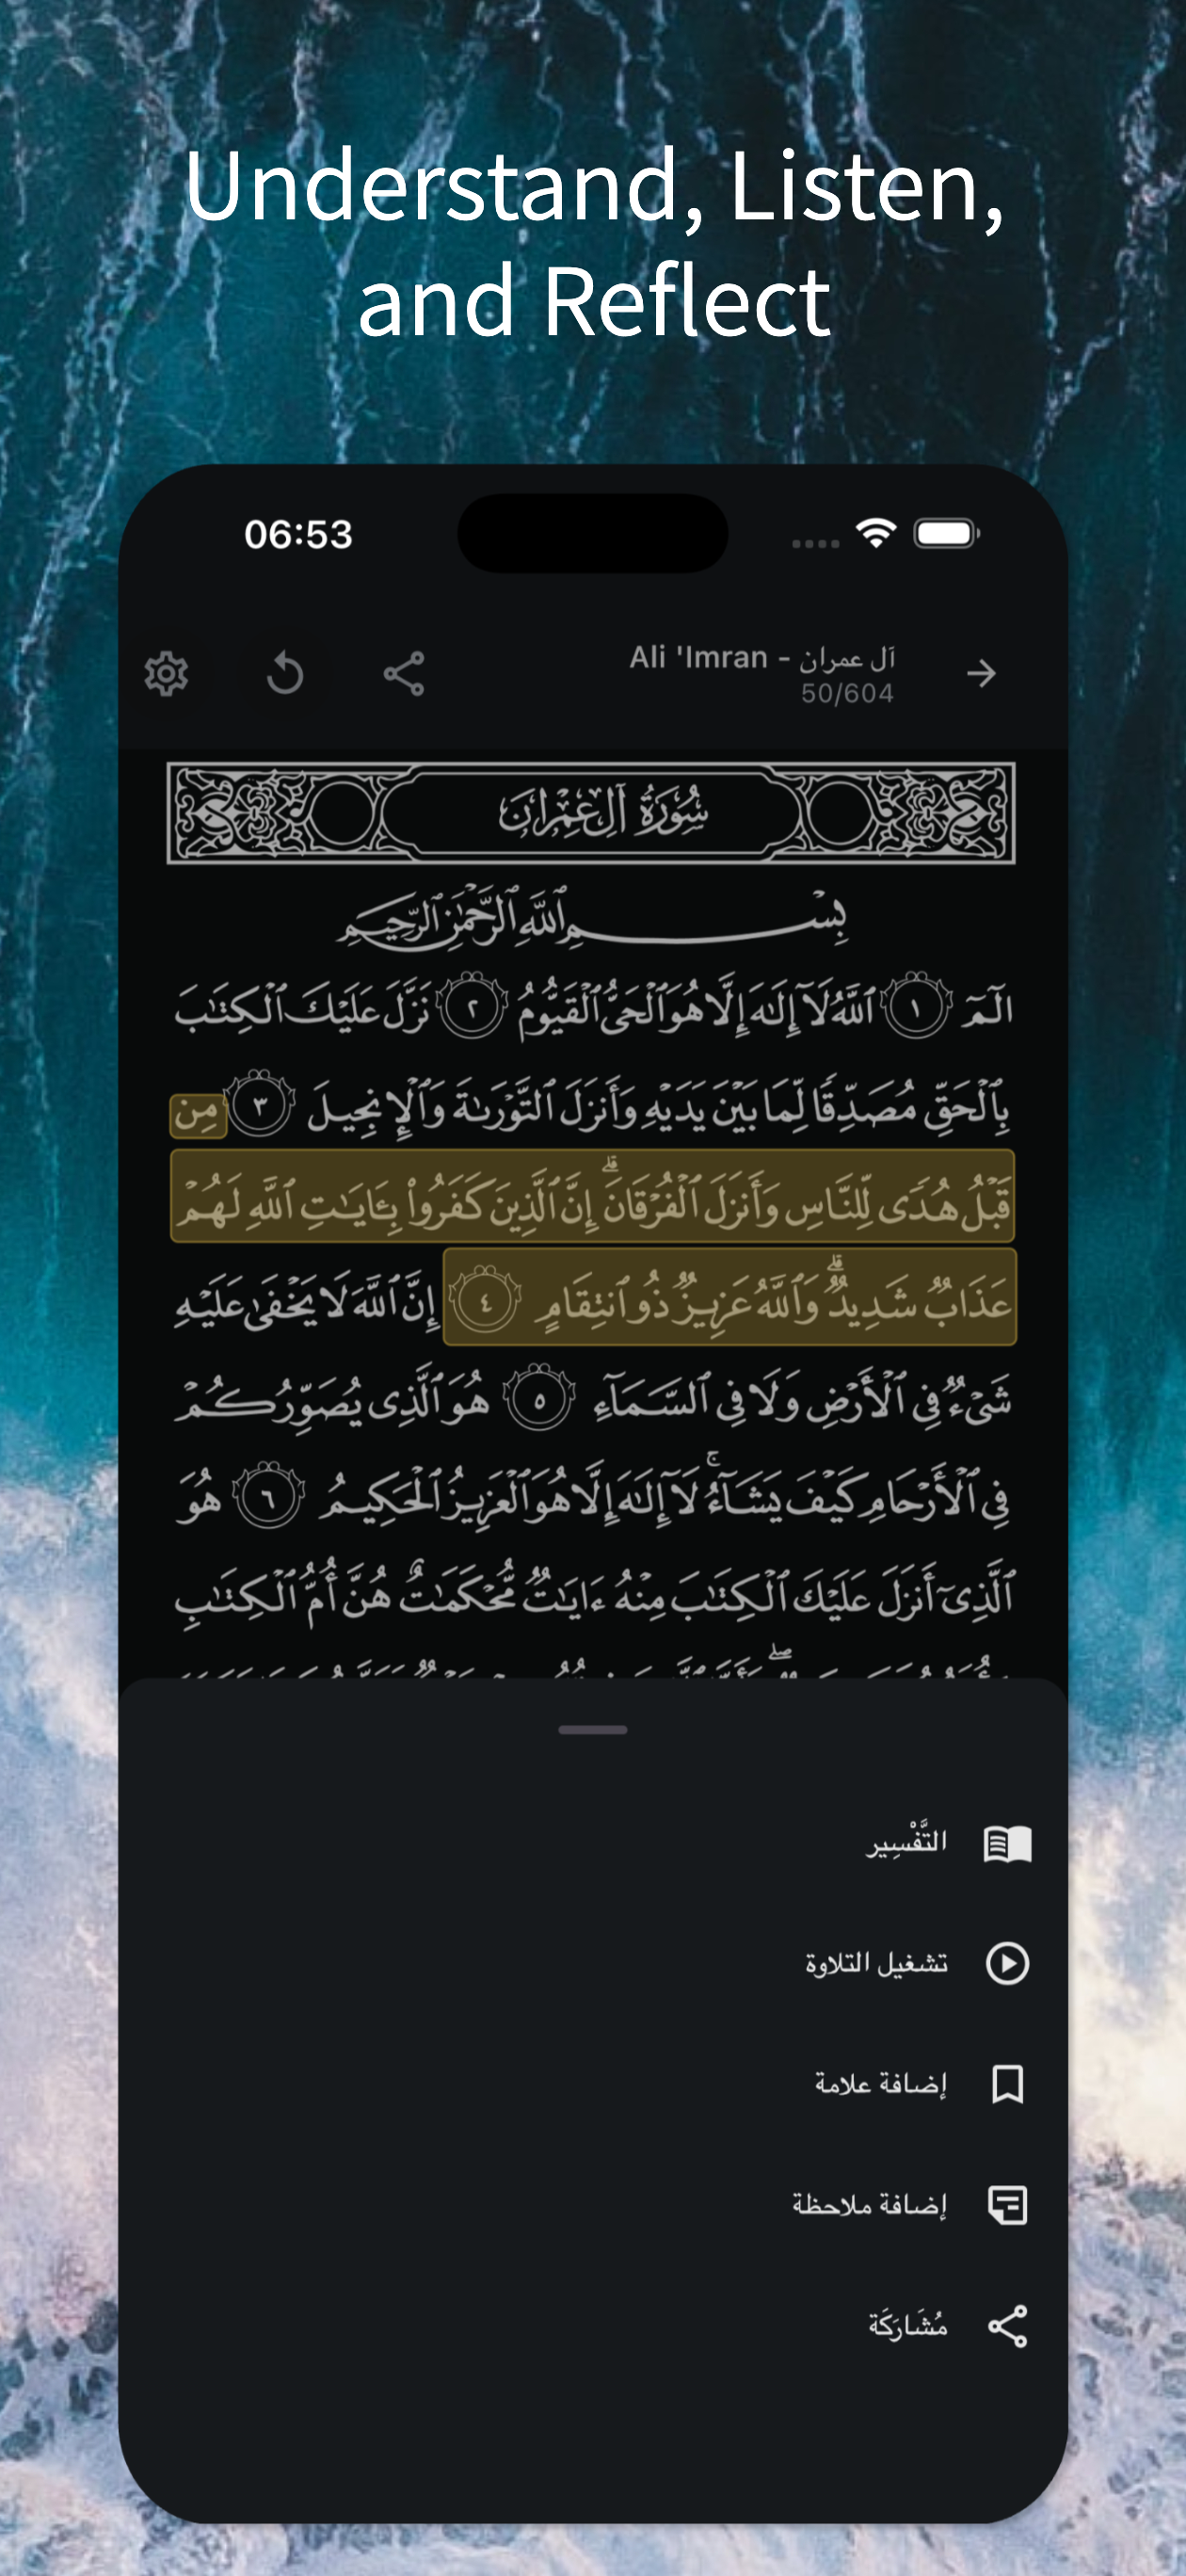 Understand, Listen,
and Reflect
06:53
Ali 'Imran - آل عمران
50/604
سُورَةُ آلِ عِمْرَانَ
بِسْمِ ٱللَّهِ ٱلرَّحْمَٰنِ ٱلرَّحِيمِ
الٓمٓ ١ ٱللَّهُ لَآ إِلَٰهَ إِلَّا هُوَ ٱلْحَىُّ ٱلْقَيُّومُ ٢ نَزَّلَ عَلَيْكَ ٱلْكِتَٰبَ
بِٱلْحَقِّ مُصَدِّقًا لِّمَا بَيْنَ يَدَيْهِ وَأَنزَلَ ٱلتَّوْرَىٰةَ وَٱلْإِنجِيلَ ٣ مِن
قَبْلُ هُدًى لِّلنَّاسِ وَأَنزَلَ ٱلْفُرْقَانَ ۗ إِنَّ ٱلَّذِينَ كَفَرُوا۟ بِـَٔايَٰتِ ٱللَّهِ لَهُمْ
عَذَابٌ شَدِيدٌ ۗ وَٱللَّهُ عَزِيزٌ ذُو ٱنتِقَامٍ ٤ إِنَّ ٱللَّهَ لَا يَخْفَىٰ عَلَيْهِ
شَىْءٌ فِى ٱلْأَرْضِ وَلَا فِى ٱلسَّمَآءِ ٥ هُوَ ٱلَّذِى يُصَوِّرُكُمْ
فِى ٱلْأَرْحَامِ كَيْفَ يَشَآءُ ۚ لَآ إِلَٰهَ إِلَّا هُوَ ٱلْعَزِيزُ ٱلْحَكِيمُ ٦ هُوَ
ٱلَّذِىٓ أَنزَلَ عَلَيْكَ ٱلْكِتَٰبَ مِنْهُ ءَايَٰتٌ مُّحْكَمَٰتٌ هُنَّ أُمُّ ٱلْكِتَٰبِ
التَّفْسِير
تشغيل التلاوة
إضافة علامة
إضافة ملاحظة
مُشَارَكَة